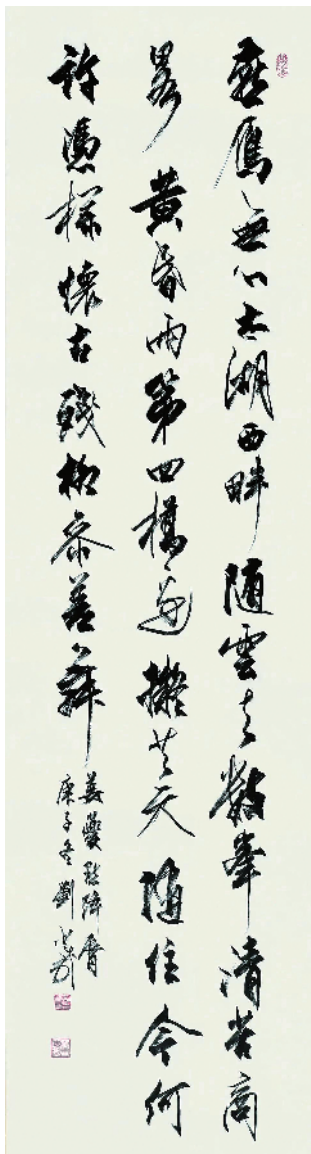 燕鴈無心太湖西畔随雲去數峯清苦商
畧黃昏雨第四橋邊擬共天随住今何
許憑欄懷古殘柳參差舞
姜夔點絳唇
庚子冬劉